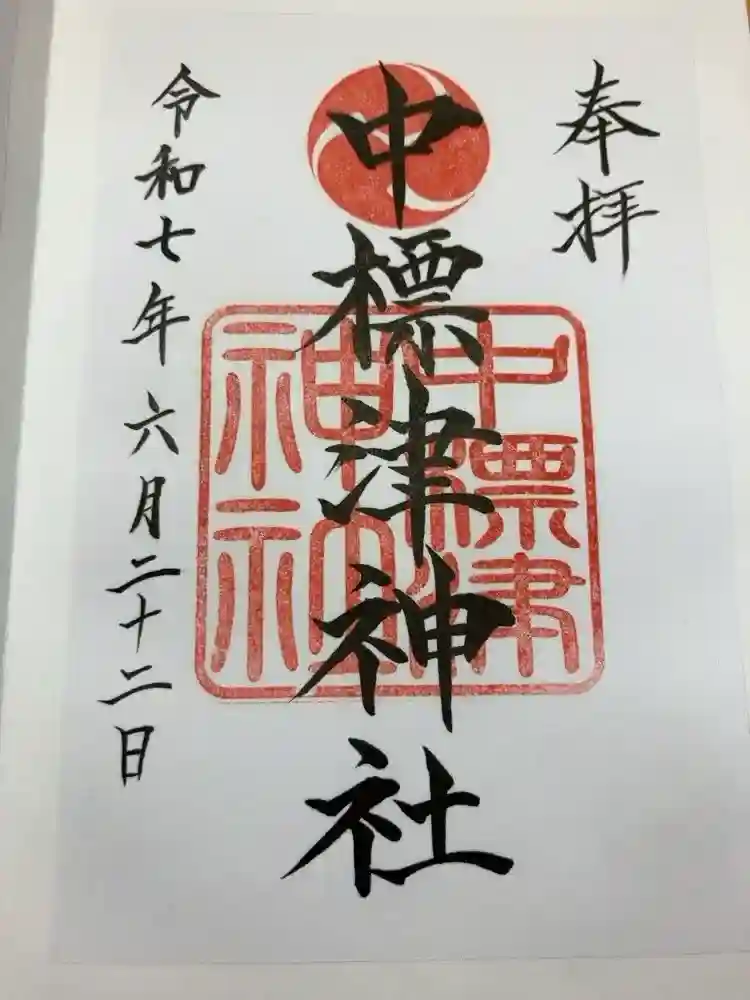 奉拝
中標津神社
中標津
神社
令和七年六月二十二日